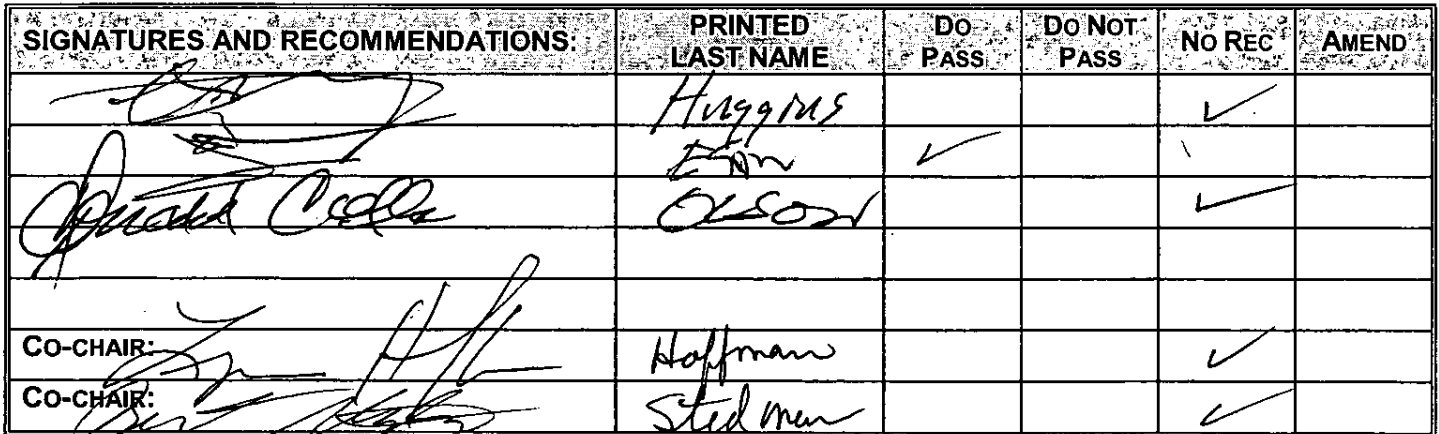 SIGNATURES AND RECOMMENDATIONS: PRINTED LAST NAME DO PASS DO NOT PASS NO REC AMEND
Huggins ✓
✓
Donald Olson ✓
CO-CHAIR: Hoffman ✓
CO-CHAIR: Bert Stedman Stedman ✓